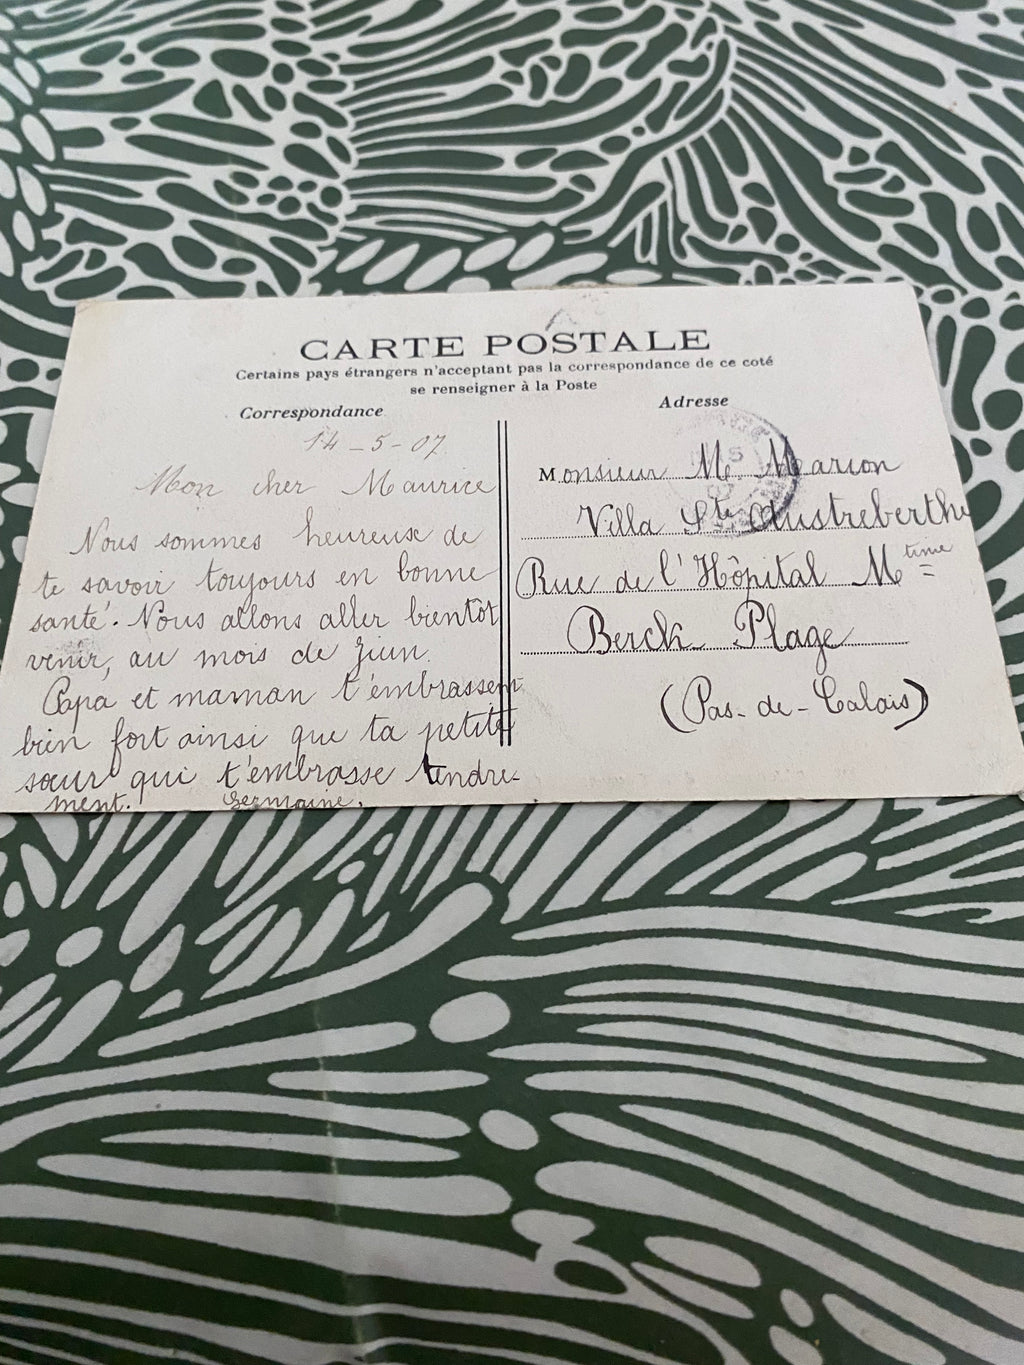 CARTE POSTALE
Certains pays étrangers n'acceptant pas la correspondance de ce coté
se renseigner à la Poste
Correspondance
14-5-07
Mon cher Maurice
Nous sommes heureuse de
te savoir toujours en bonne
santé. Nous allons aller bientôt
venir, au mois de Juin.
Papa et maman t'embrassent
bien fort ainsi que ta petite
sœur qui t'embrasse tendre-
ment. Germaine.
Adresse
Monsieur M. Marion
Villa Ste Austreberthe
Rue de l'Hôpital Mtime
Berck Plage
(Pas-de-Calais)